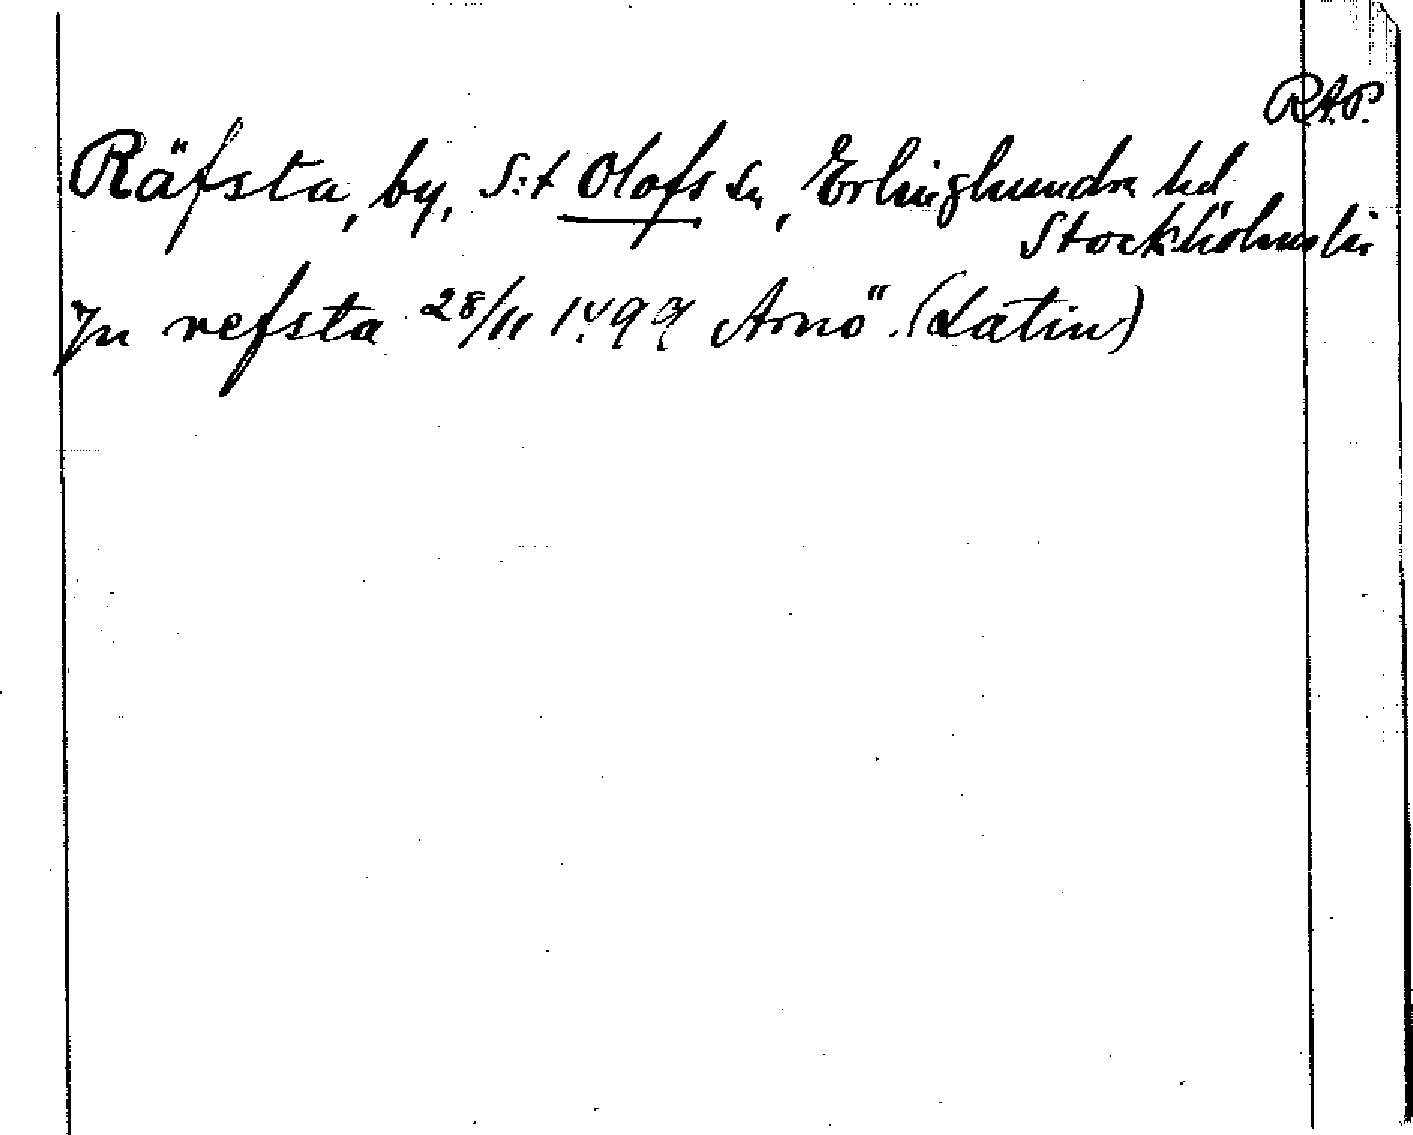 R.A.P.
Räfsta, by, S:t Olofs sn, Erlinghundra hd
Stockholms län
Jn refsta 28/11 1499 Arnö. (Latin)